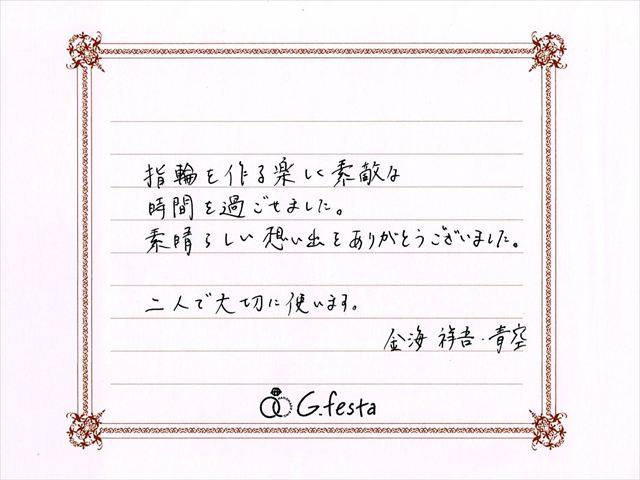 指輪を作る楽しく素敵な
時間を過ごせました。
素晴らしい想い出をありがとうございました。
二人で大切に使います。
金海 祥吾・青空
G.festa